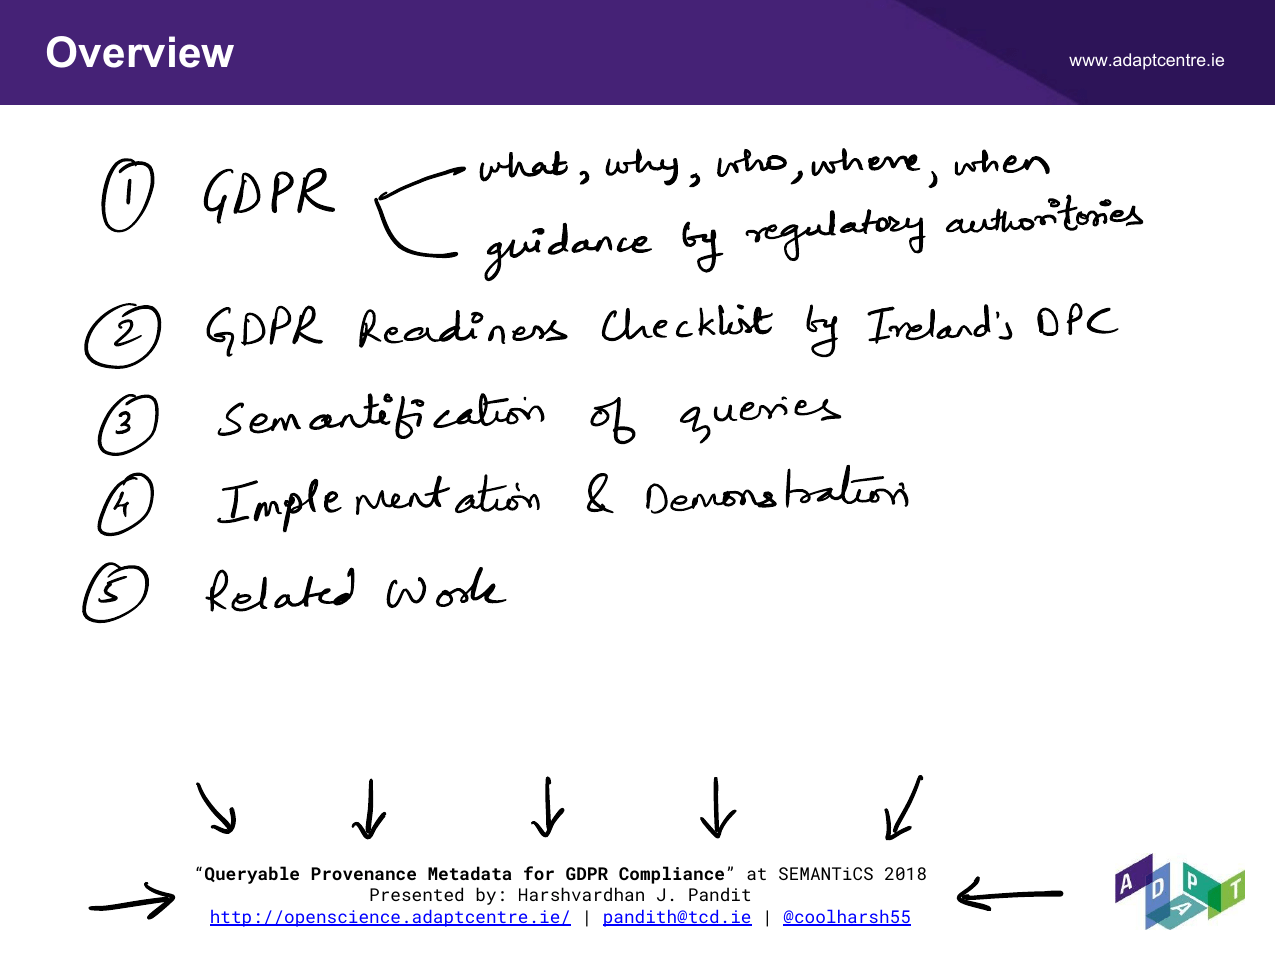 Overview
www.adaptcentre.ie
1 GDPR
what, why, who, where, when
guidance by regulatory authoritories
2 GDPR Readiness Checklist by Ireland's DPC
3 Semantification of queries
4 Implementation & Demonstration
5 Related Work
“Queryable Provenance Metadata for GDPR Compliance” at SEMANTiCS 2018
Presented by: Harshvardhan J. Pandit
http://openscience.adaptcentre.ie/ | pandith@tcd.ie | @coolharsh55
ADAPT